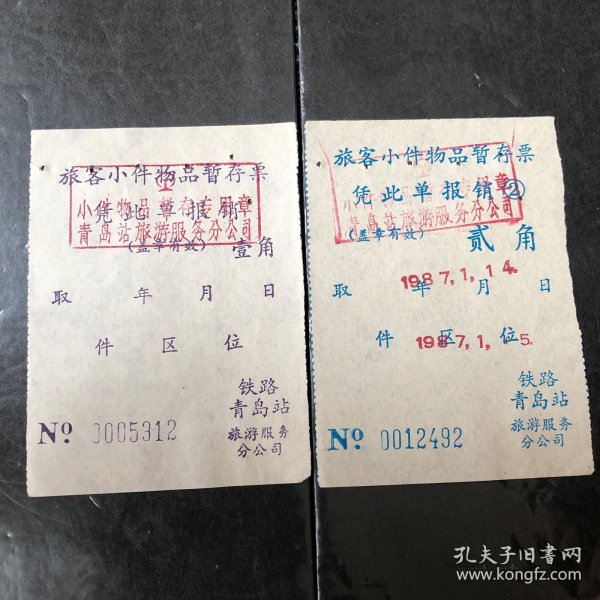 旅客小件物品暂存票
凭此单报销
小件物品暂存专用章
青岛站旅游服务分公司
(盖章有效)
壹角
取 年 月 日
件 区 位
铁路
青岛站
旅游服务
分公司
№ 0005312
旅客小件物品暂存票
凭此单报销②
青岛站旅游服务分公司
(盖章有效)
贰角
1987.1.14.
取 年 月 日
件 区 位
1987.1.15.
铁路
青岛站
旅游服务
分公司
№ 0012492
孔夫子旧书网
www.kongfz.com